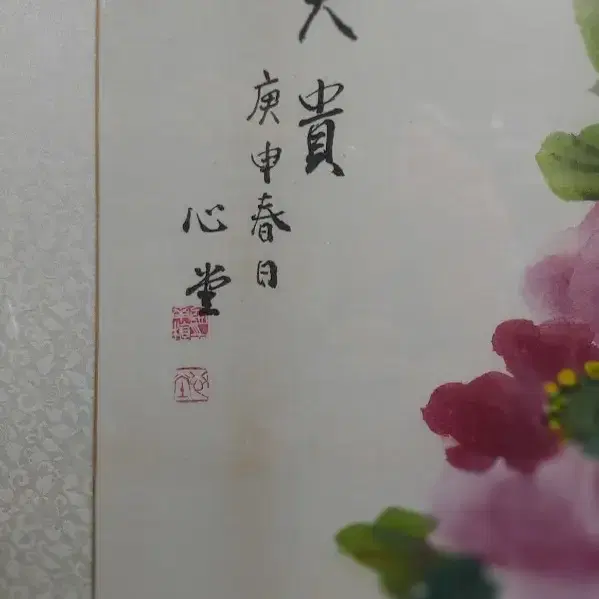 大貴
庚申春日
心堂